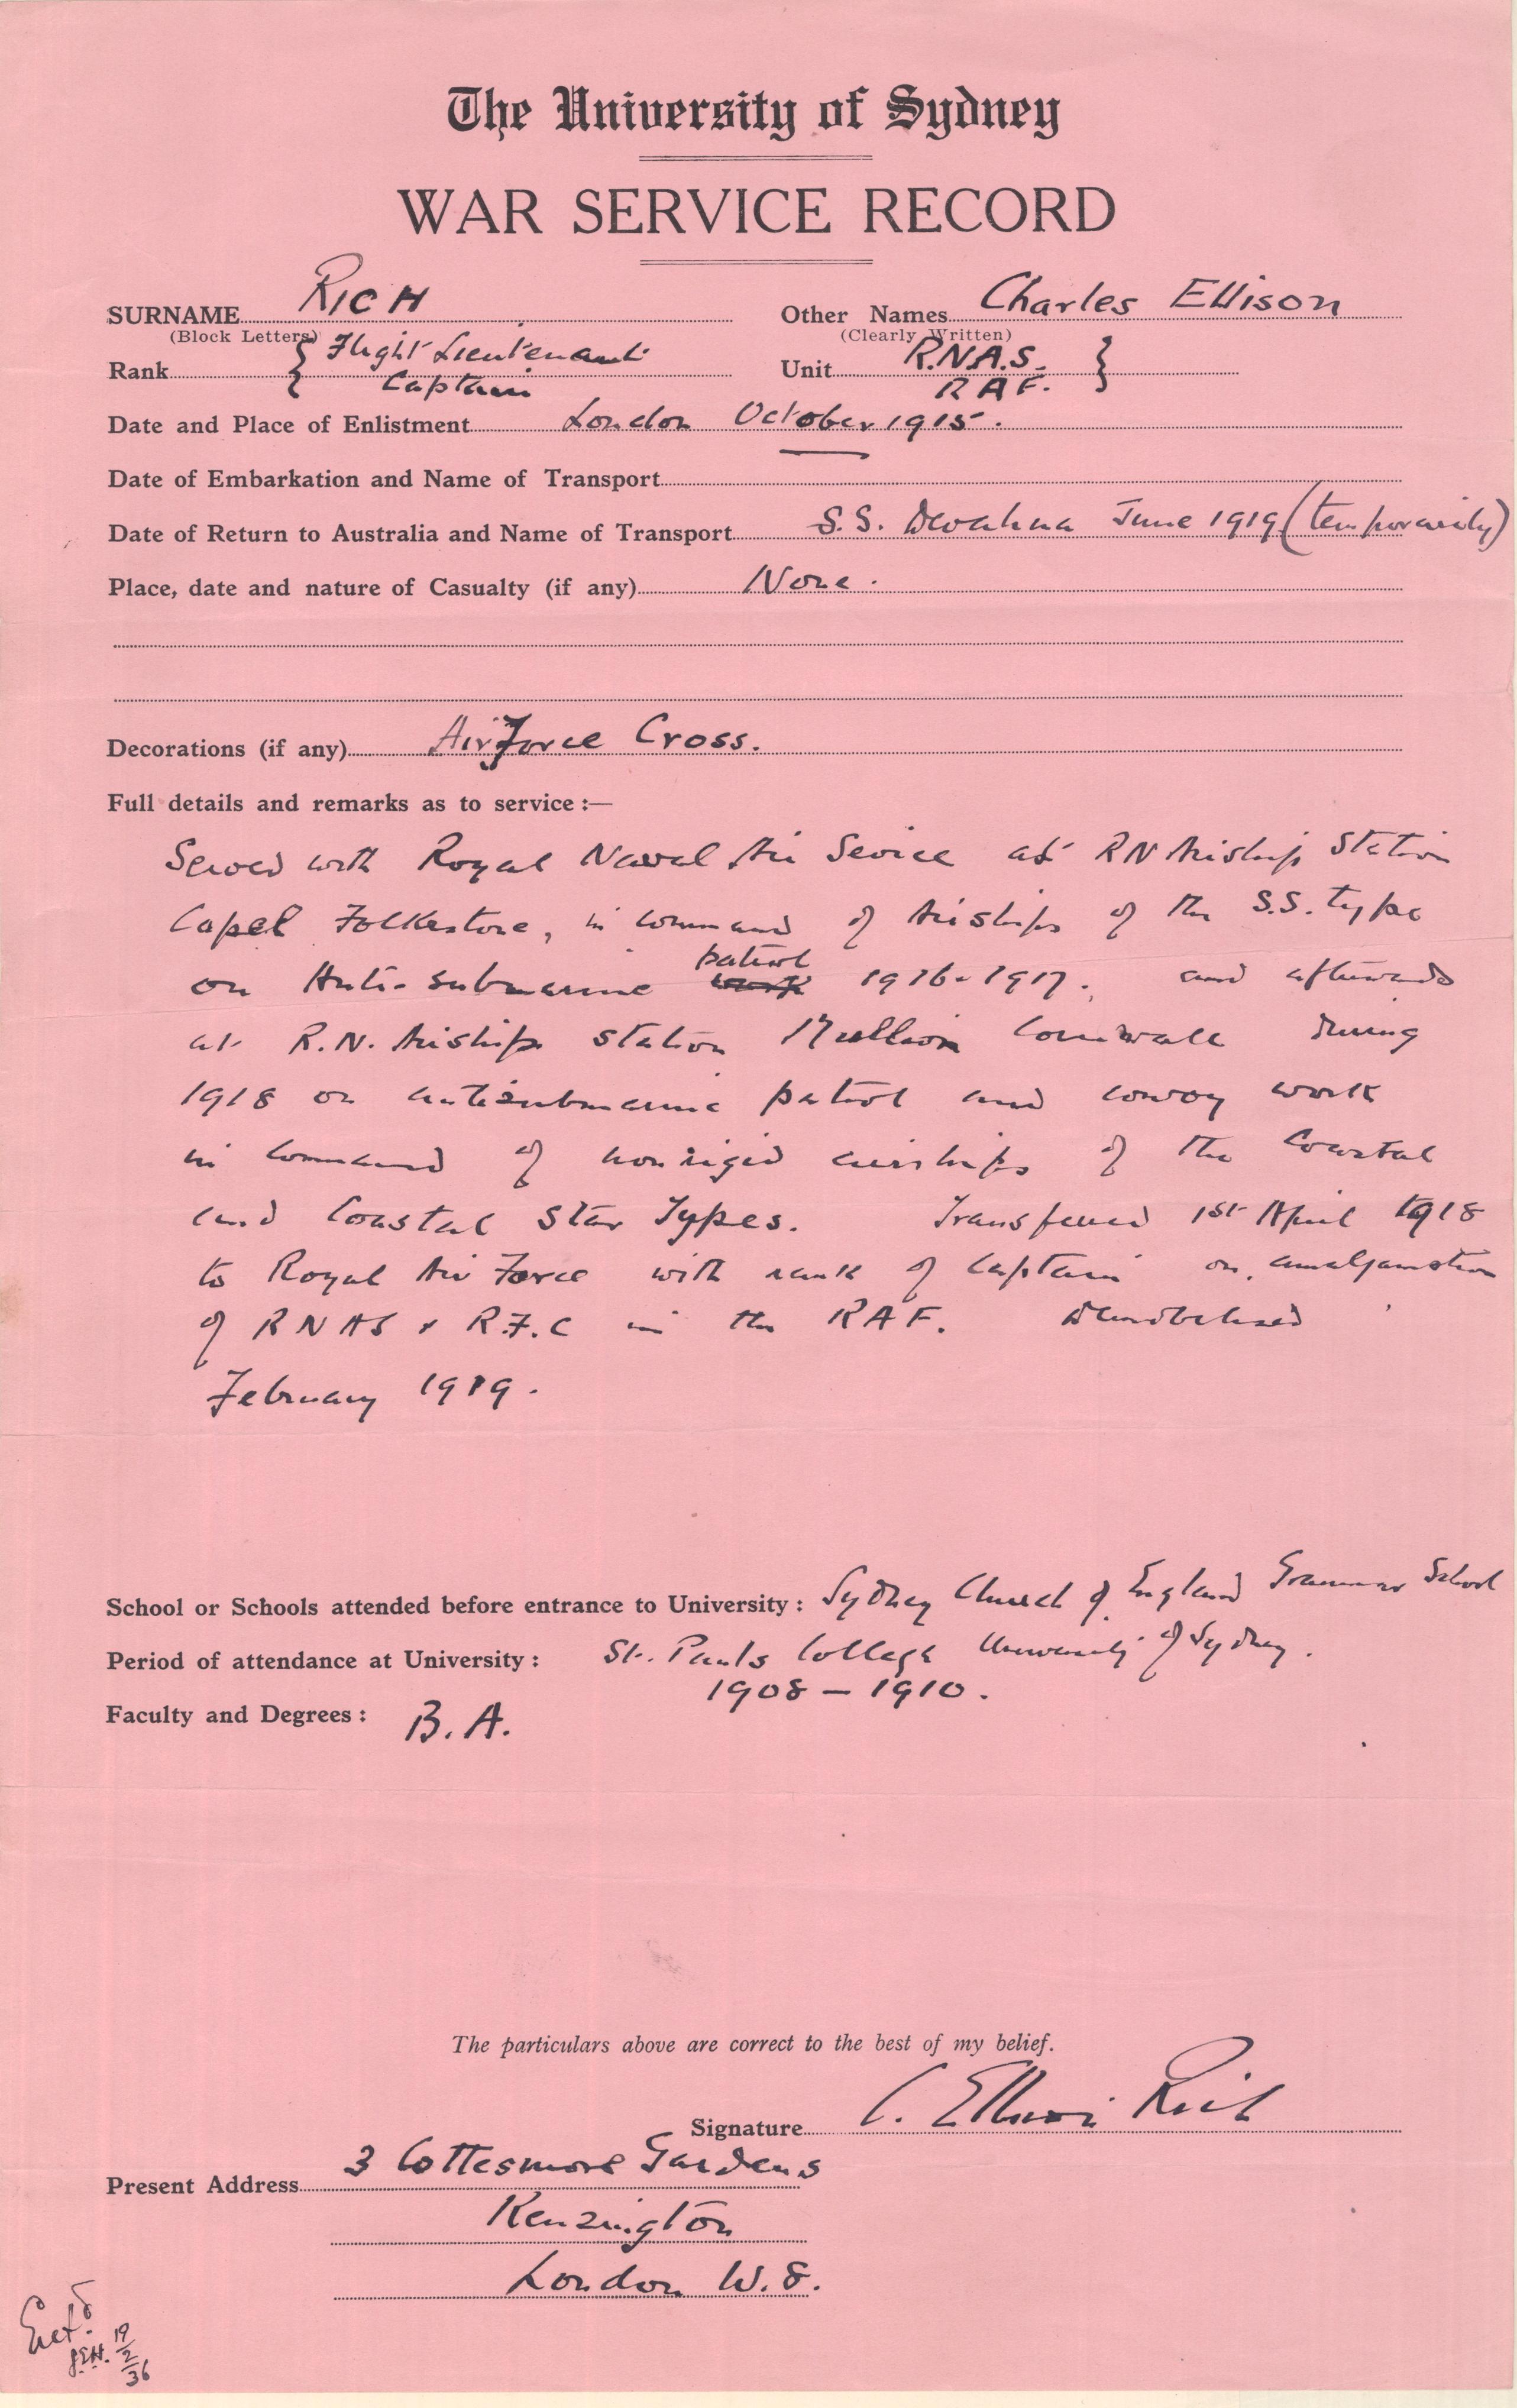 The University of Sydney
WAR SERVICE RECORD
SURNAME RICH Other Names Charles Ellison
(Block Letters) (Clearly Written)
Rank { Flight Lieutenant Unit R.N.A.S. }
Captain RAF.
Date and Place of Enlistment London October 1915.
Date of Embarkation and Name of Transport —
Date of Return to Australia and Name of Transport S.S. Devanha June 1919 (temporarily)
Place, date and nature of Casualty (if any) None.
Decorations (if any) Air Force Cross.
Full details and remarks as to service :—
Served with Royal Naval Air Sevice at RN Airship Station
Capel Folkestone, in command of Airships of the S.S. type
on Anti-submarine work patrol 1916-1917. and afterwards
at R.N. Airship Station Mullion Cornwall during
1918 on antisubmarine patrol and convoy work
in command of non rigid airships of the Coastal
and Coastal Star Types. Transferred 1st April 1918
to Royal Air Force with rank of Captain on amalgamation
of RNAS & R.F.C in the RAF. Demobolised
February 1919.
School or Schools attended before entrance to University : Sydney Church of England Grammar School
Period of attendance at University : St. Pauls College University of Sydney.
1908 – 1910.
Faculty and Degrees : B.A.
The particulars above are correct to the best of my belief.
Signature C. Ellison Rich
Present Address 3 Cottesmore Gardens
Kensington
London W.8.
J.E.H. 19/2/36